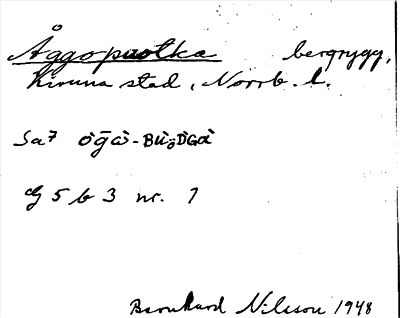 Åggopuolka bergrygg,
Kiruna stad, Norrb. l.
Sa7
G 5 b 3 nr. 7
Bernhard Nilsson 1948